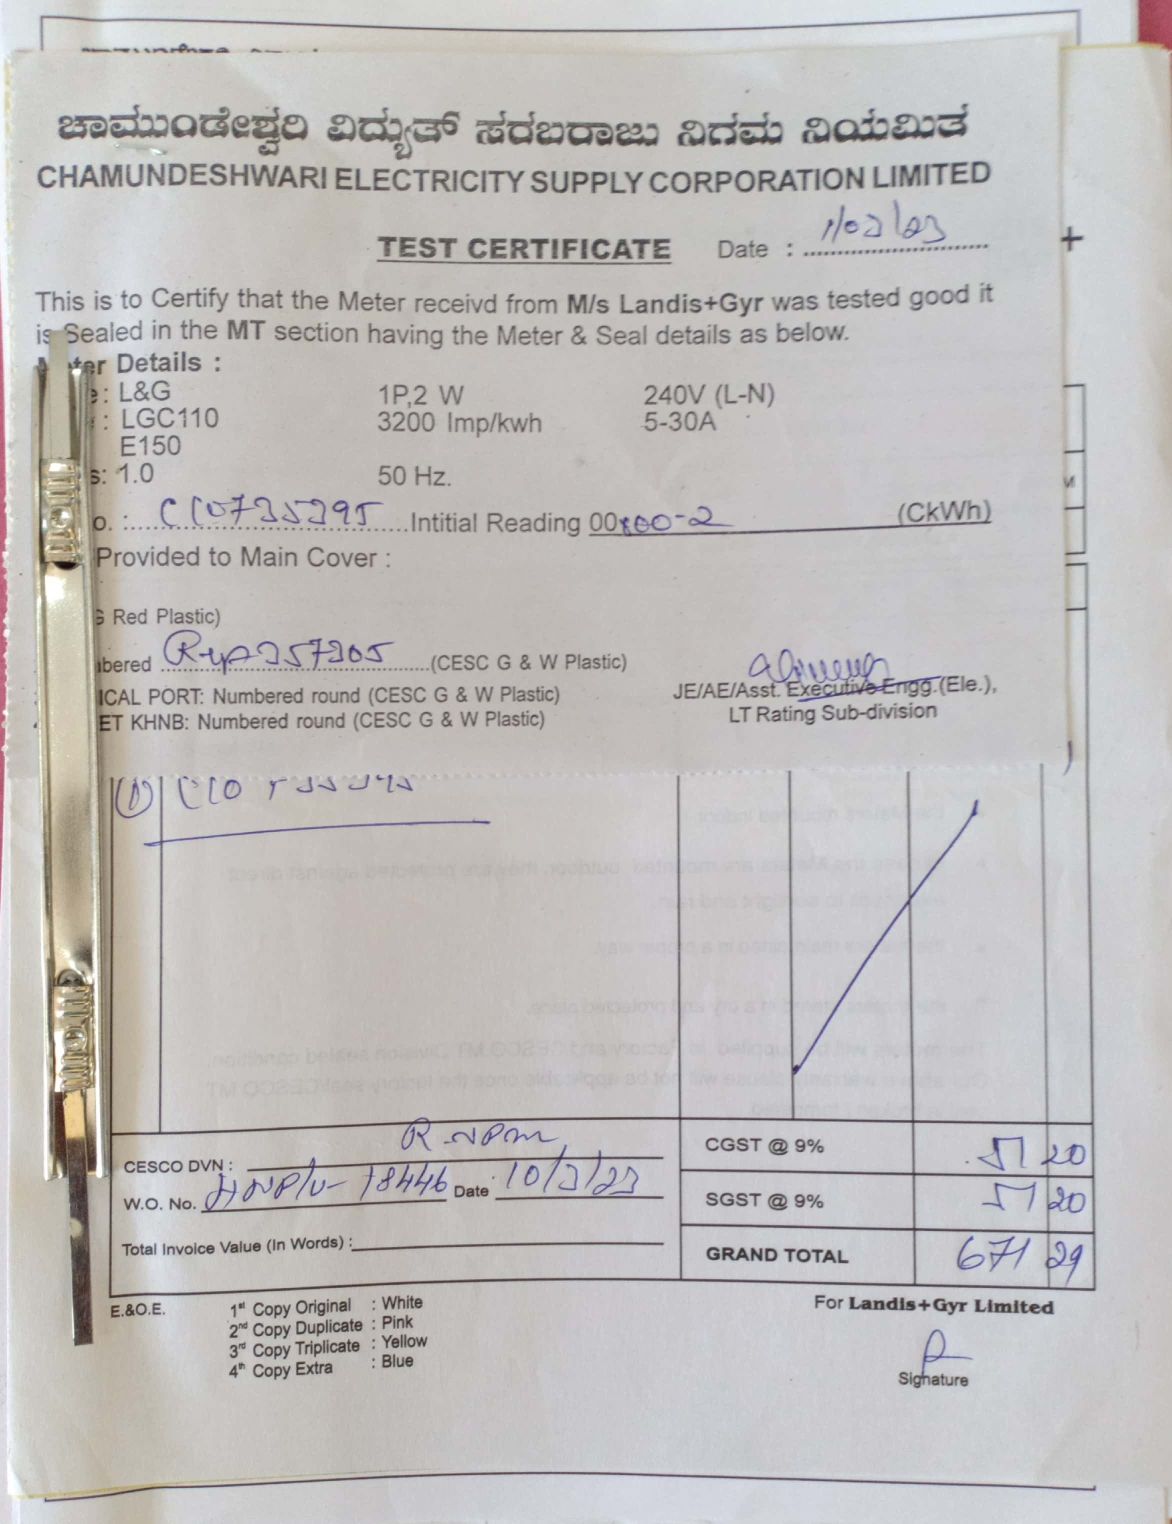 ಚಾಮುಂಡೇಶ್ವರಿ ವಿದ್ಯುತ್ ಸರಬರಾಜು ನಿಗಮ ನಿಯಮಿತ
CHAMUNDESHWARI ELECTRICITY SUPPLY CORPORATION LIMITED
TEST CERTIFICATE Date :
This is to Certify that the Meter receivd from M/s Landis+Gyr was tested good it
is Sealed in the MT section having the Meter & Seal details as below.
Details :
: L&G 1P,2 W 240V (L-N)
: LGC110 3200 Imp/kwh 5-30A
E150
: 1.0 50 Hz.
Intitial Reading 00 (CkWh)
Provided to Main Cover :
Red Plastic)
(CESC G & W Plastic)
PORT: Numbered round (CESC G & W Plastic)
KHNB: Numbered round (CESC G & W Plastic)
JE/AE/Asst. Executive Engg.(Ele.),
LT Rating Sub-division
(1)
CESCO DVN :
W.O. No. 18446 Date 10/3/23
Total Invoice Value (In Words) :
CGST @ 9% 51 20
SGST @ 9% 51 20
GRAND TOTAL 671 29
E.&O.E.
1st Copy Original : White
2nd Copy Duplicate : Pink
3rd Copy Triplicate : Yellow
4th Copy Extra : Blue
For Landis+Gyr Limited
Signature